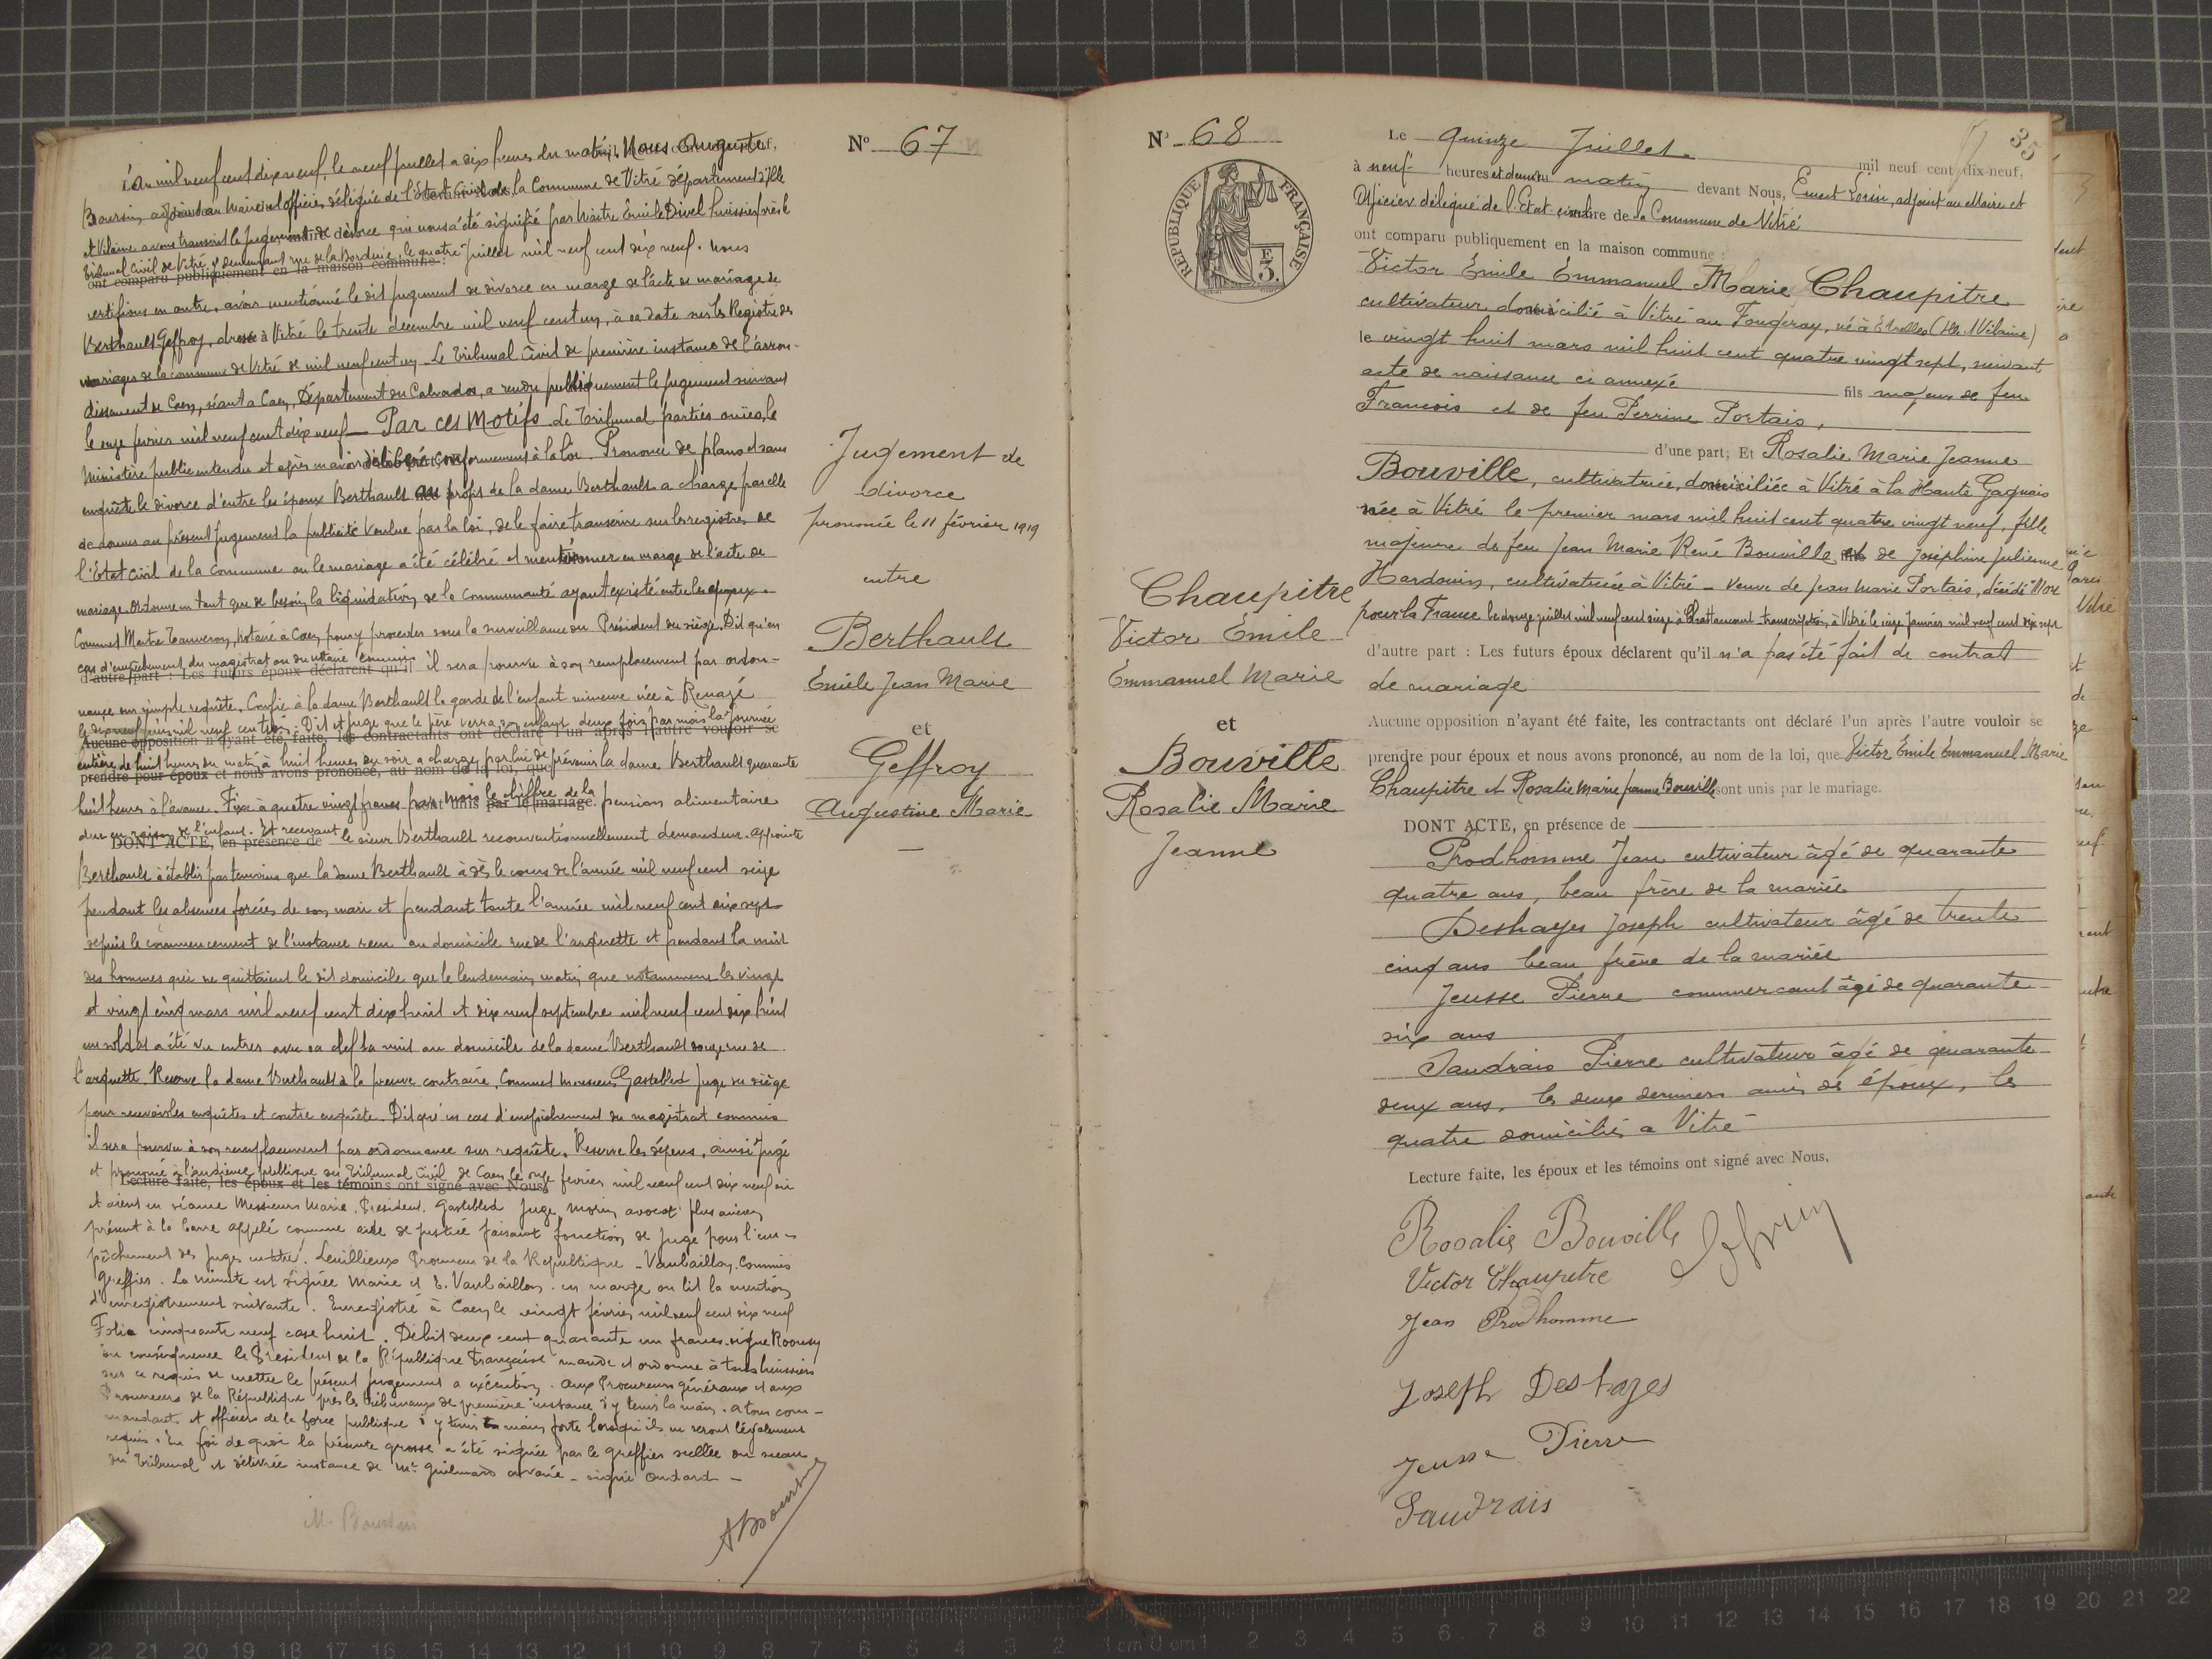 L'an mil neuf cent dix neuf, le neuf juillet a dix heures du matin, Nous Auguste
Boursin, adjoint au Maire et officier délégué de l'Etat Civil de la Commune de Vitré département d'Ille
et Vilaine avons transcrit le jugement de divorce qui nous a été signifié par Maître Emile Divel huissier près le
tribunal Civil de Vitré, y demeurant rue de la Borderie, le quatre Juillet mil neuf cent dix neuf. Nous
ont comparu publiquement en la maison commune :
certifions en outre, avoir mentionné le dit jugement de divorce en marge de l'acte de mariage de
Berthault Geffroy, dressé à Vitré le trente décembre mil neuf cent un, à sa date sur les Registres des
mariages de la commune de Vitré de mil neuf cent un. Le Tribunal Civil de première instance de l'arron-
dissement de Caen, séant a Caen, Département du Calvados, a rendu publiquement le jugement suivant
le onze février mil neuf cent dix neuf — Par ces Motifs. Le Tribunal parties ouïes, le
Ministère public entendu et après en avoir délibéré conformément à la loi. Prononce de plano et sans
enquête le divorce d'entre les époux Berthault au profit de la dame Berthault a charge par elle
de donner au présent jugement la publicité voulue par la loi, de le faire transcrire sur les registres de
l'Etat Civil de la commune ou le mariage a été célébré et mentionner en marge de l'acte de
mariage. Ordonne en tant que de besoin la liquidation de la communauté ayant existé entre les époux.
Commet Maître Tauveron, notaire à Caen, pour y procéder sous la surveillance du Président du siège. Dit qu'en
cas d'empêchement du magistrat ou du notaire commis il sera pourvu à son remplacement par ordon-
d'autre part : Les futurs époux déclarent qu'il
nance sur simple requête. Confie à la dame Berthault la garde de l'enfant mineure née à Renazé
le dix neuf juin mil neuf cent trois. Dit et juge que le père verra son enfant deux fois par mois la journée
Aucune opposition n'ayant été faite, les contractants ont déclaré l'un après l'autre vouloir se
entière de huit heures du matin à huit heures du soir a charge par lui de prévenir la dame Berthault quarante
prendre pour époux et nous avons prononcé, au nom de la loi, que
huit heures à l'avance. Fixe à quatre vingt francs par mois le chiffre de la pension alimentaire
sont unis par le mariage.
due en raison de l'enfant. Et recevant le sieur Berthault reconventionnellement demandeur. appointe
DONT ACTE, en présence de
Berthault à établir par témoins que la dame Berthault a dès le cours de l'année mil neuf cent seize
pendant les absences forcées de son mari et pendant toute l'année mil neuf cent dix sept
depuis le commencement de l'instance recu au domicile rue de l'arquette et pendant la nuit
des hommes qui ne quittaient le dit domicile que le lendemain matin que notamment les vingt
et vingt cinq mars mil neuf cent dix huit et dix neuf septembre mil neuf cent dix huit
un soldat a été vu entrer avec sa clef la nuit au domicile de la dame Berthault rue de
l'arquette. Reserve la dame Berthault à la preuve contraire. Commet Monsieur Gastebled Juge du siège
pour recevoir les enquêtes et contre enquête. Dit qu'en cas d'empêchement du magistrat commis
il sera pourvu à son remplacement par ordonnance sur requête. Reserve les dépens, ainsi jugé
et prononcé à l'audience publique du Tribunal Civil de Caen le onze février mil neuf cent dix neuf où
Lecture faite, les époux et les témoins ont signé avec Nous,
étaient en séance Messieurs Marie, Président. Gastebled Juge, Morin avocat plus ancien
présent à la barre appelé comme aide de justice faisant fonction de Juge pour l'em-
pêchement des Juges Procureur de la République - Vaubaillon. Commis
Greffier. La minute est signée Marie et E. Vaubaillon. en marge on lit la mention
d'enregistrement suivante. Enregistré à Caen le vingt février mil neuf cent dix neuf
Folio cinquante neuf case huit. Débit deux cent quarante un francs. signé
En conséquence le Président de la République Française mande et ordonne à tous huissiers
sur ce requis de mettre le présent jugement a exécution. aux Procureurs généraux et aux
Procureurs de la République près les tribunaux de première instance d'y tenir la main. a tous com-
mandants et officiers de la force publique d'y tenir main forte lorsqu'ils en seront légalement
requis. En foi de quoi la présente grosse a été signée par le greffier scellée du sceau
du Tribunal et délivrée instance de Me avoué - signé Oudard -
M. Boursin
ABoursin
No 67
Jugement de
divorce
prononcé le 11 février 1919
entre
Berthault
Emile Jean Marie
et
Geffroy
Augustine Marie
No 68
RÉPUBLIQUE FRANÇAISE
F
3.
Chaupitre
Victor Émile
Emmanuel Marie
et
Bouville
Rosalie Marie
Jeanne
35
Le quinze Juillet mil neuf cent dix-neuf,
à neuf heures et demie matin devant Nous, Ernest Lorin, adjoint au Maire et
Officier délégué de l'Etat civil maire de la Commune de Vitré
ont comparu publiquement en la maison commune :
Victor Émile Émmanuel Marie Chaupitre
cultivateur domicilié à Vitré au Fougeray, né à Etrelles (Ille & Vilaine)
le vingt huit mars mil huit cent quatre vingt sept, suivant
acte de naissance ci annexé fils majeur de feu
Francois et de feu Perrine Portais,
d'une part; Et Rosalie Marie Jeanne
Bouville, cultivatrice, domiciliée à Vitré à la Haute Gagnais
née à Vitré le premier mars mil huit cent quatre vingt neuf, fille
majeure de feu Jean Marie René Bouville et de Joséphine Julienne
Hardouin, cultivatrice à Vitré - veuve de Jean Marie Portais, décédé "Mort
pour la France" le douze juillet mil neuf cent seize à Chattancourt transcription à Vitré le onze janvier mil neuf cent dix sept
d'autre part : Les futurs époux déclarent qu'il n'a pas été fait de contrat
de mariage
Aucune opposition n'ayant été faite, les contractants ont déclaré l'un après l'autre vouloir se
prendre pour époux et nous avons prononcé, au nom de la loi, que Victor Émile Émmanuel Marie
Chaupitre et Rosalie Marie Jeanne Bouville sont unis par le mariage.
DONT ACTE, en présence de
Prodhomme Jean cultivateur âgé de quarante
quatre ans, beau frère de la mariée
Deshayes Joseph cultivateur âgé de trente
cinq ans beau frère de la mariée
Jeusse Pierre commercant âgé de quarante
six ans
Jaudrais Pierre cultivateur âgé de quarante
deux ans, les deux derniers amis des époux, les
quatre domiciliés a Vitré
Lecture faite, les époux et les témoins ont signé avec Nous,
Rosalie Bouville
Victor Chaupitre
Jean Prodhomme
Joseph Deshayes
Jeusse Pierre
Jaudrais